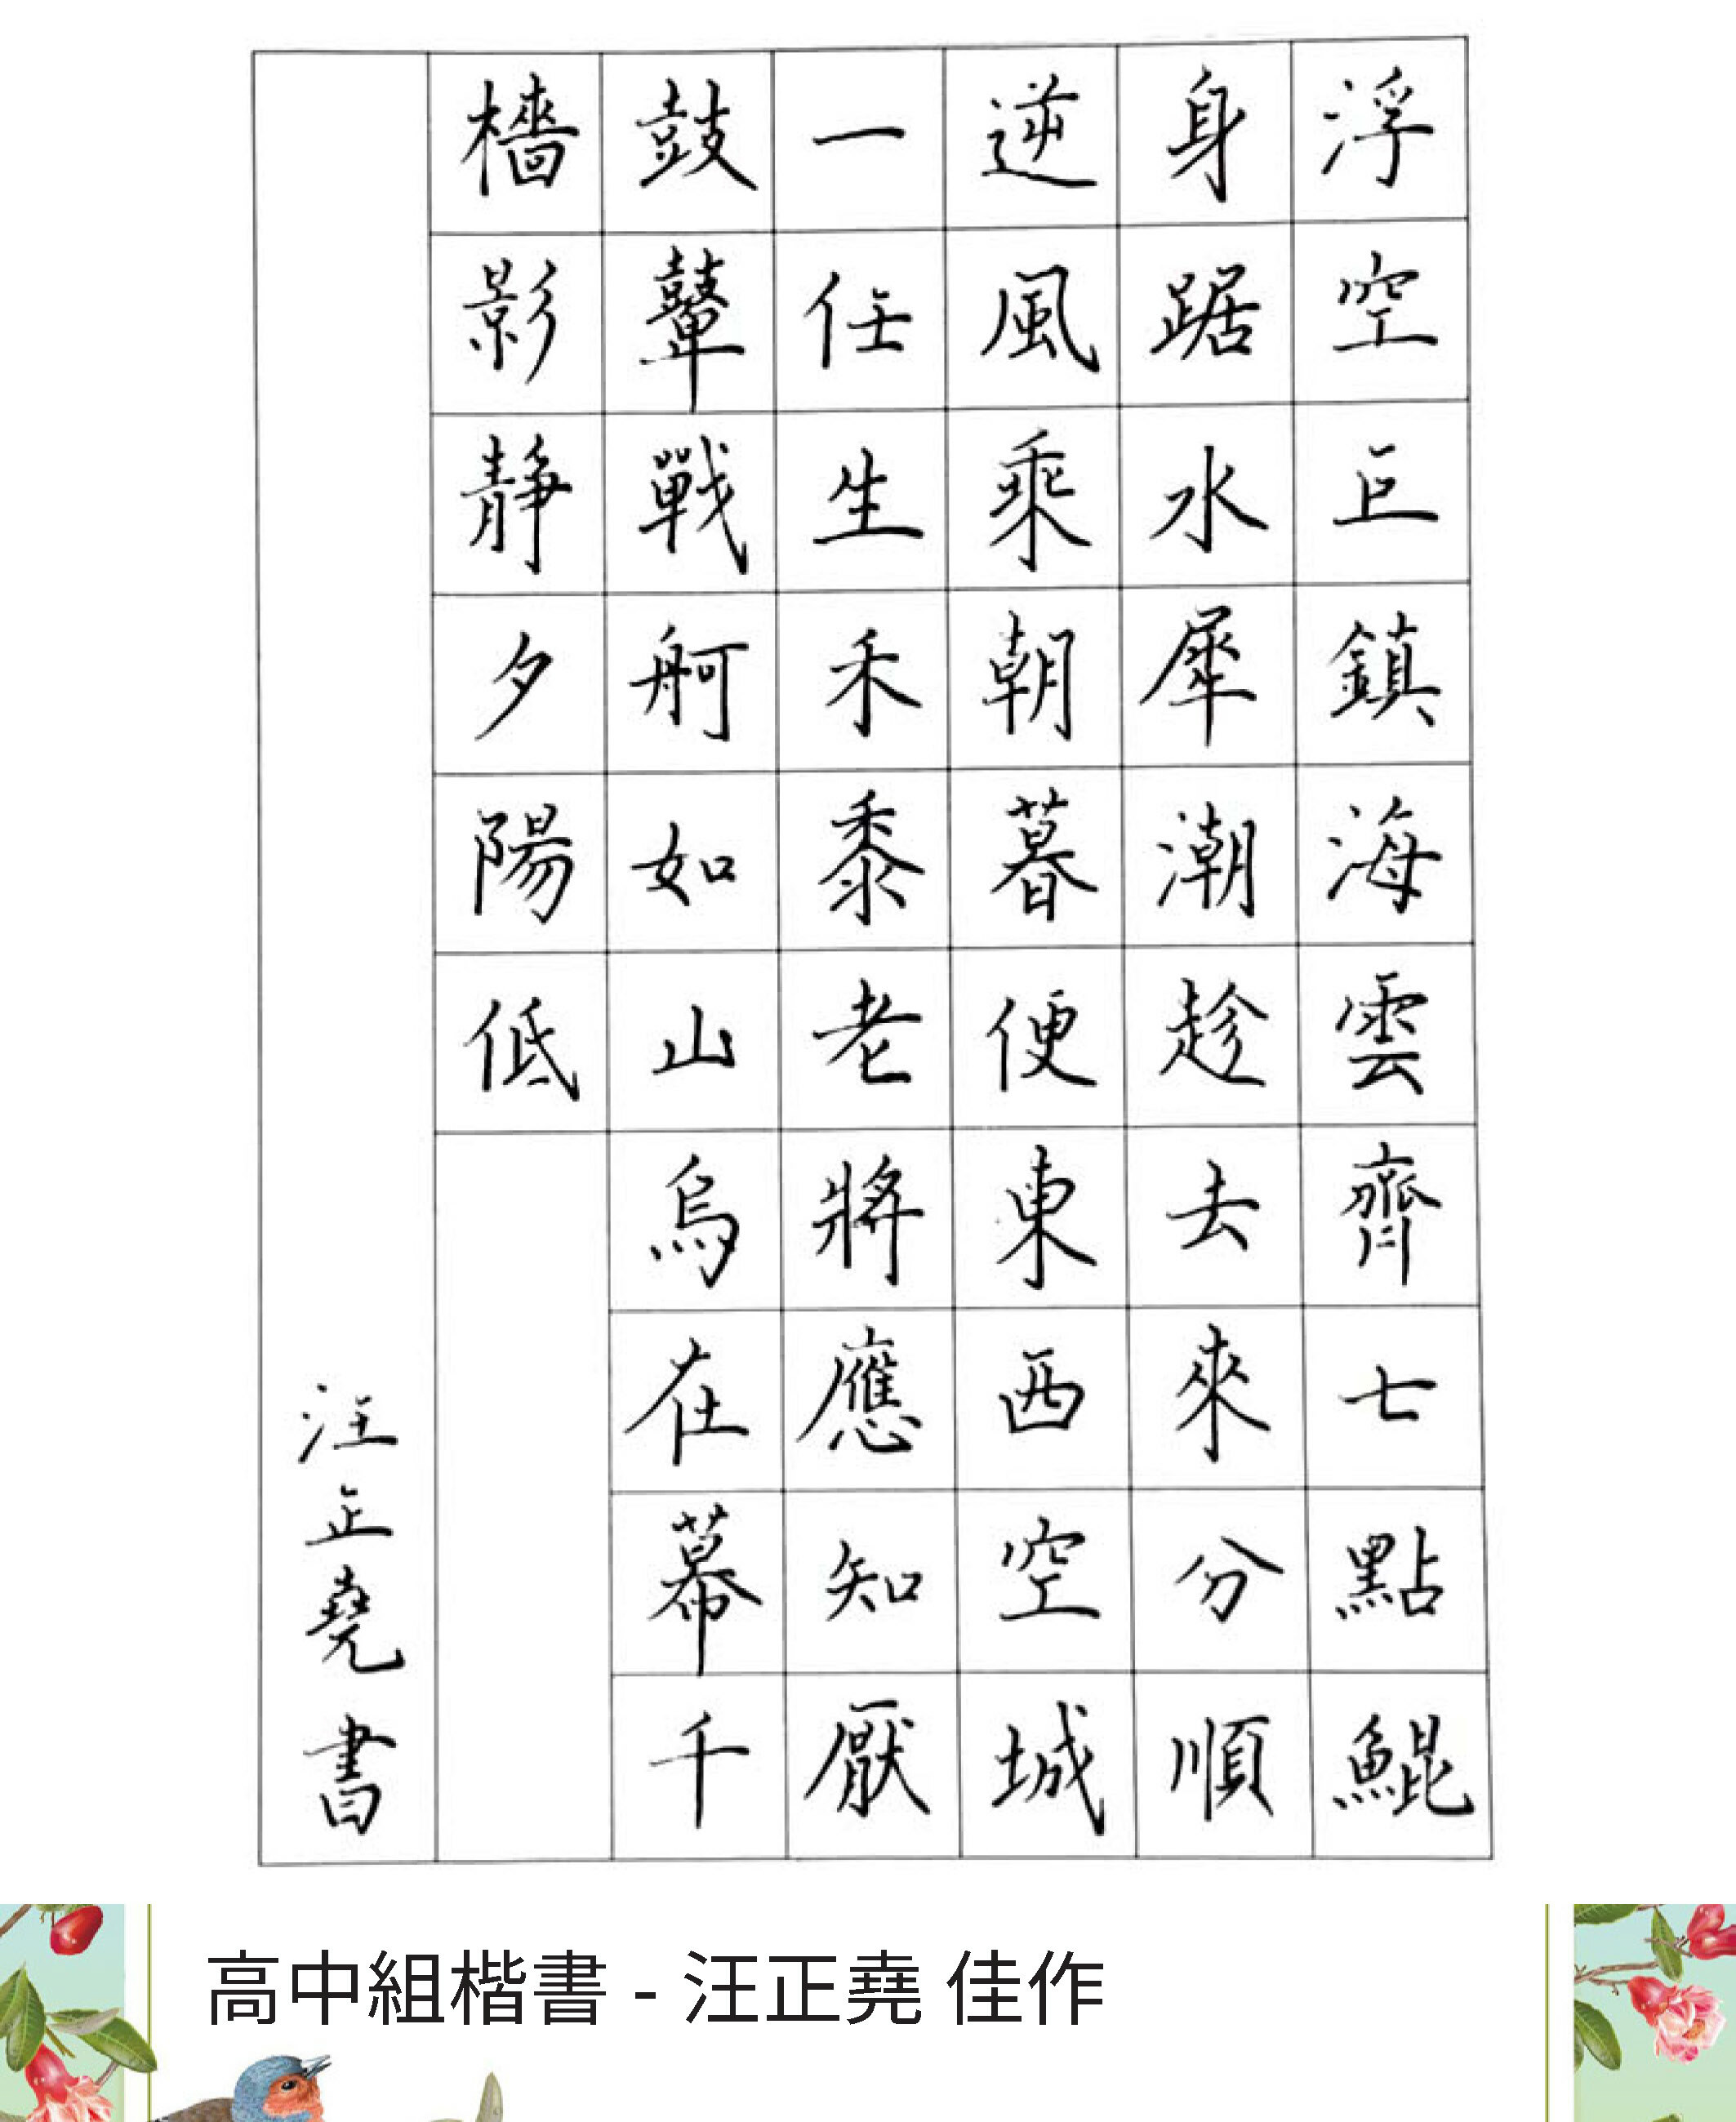 浮空巨鎮海雲齊七點鯤
身踞水犀潮趁去來分順
逆風乘朝暮便東西空城
一任生禾黍老將應知厭
鼓鼙戰舸如山烏在幕千
檣影靜夕陽低
汪正堯書
高中組楷書 - 汪正堯 佳作